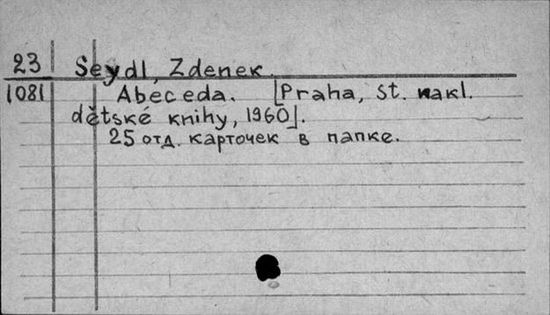 23 Seydl, Zdenek.
1081 Abeceda. [Praha, St. nakl.
dětské knihy, 1960].
25 отд. карточек в папке.